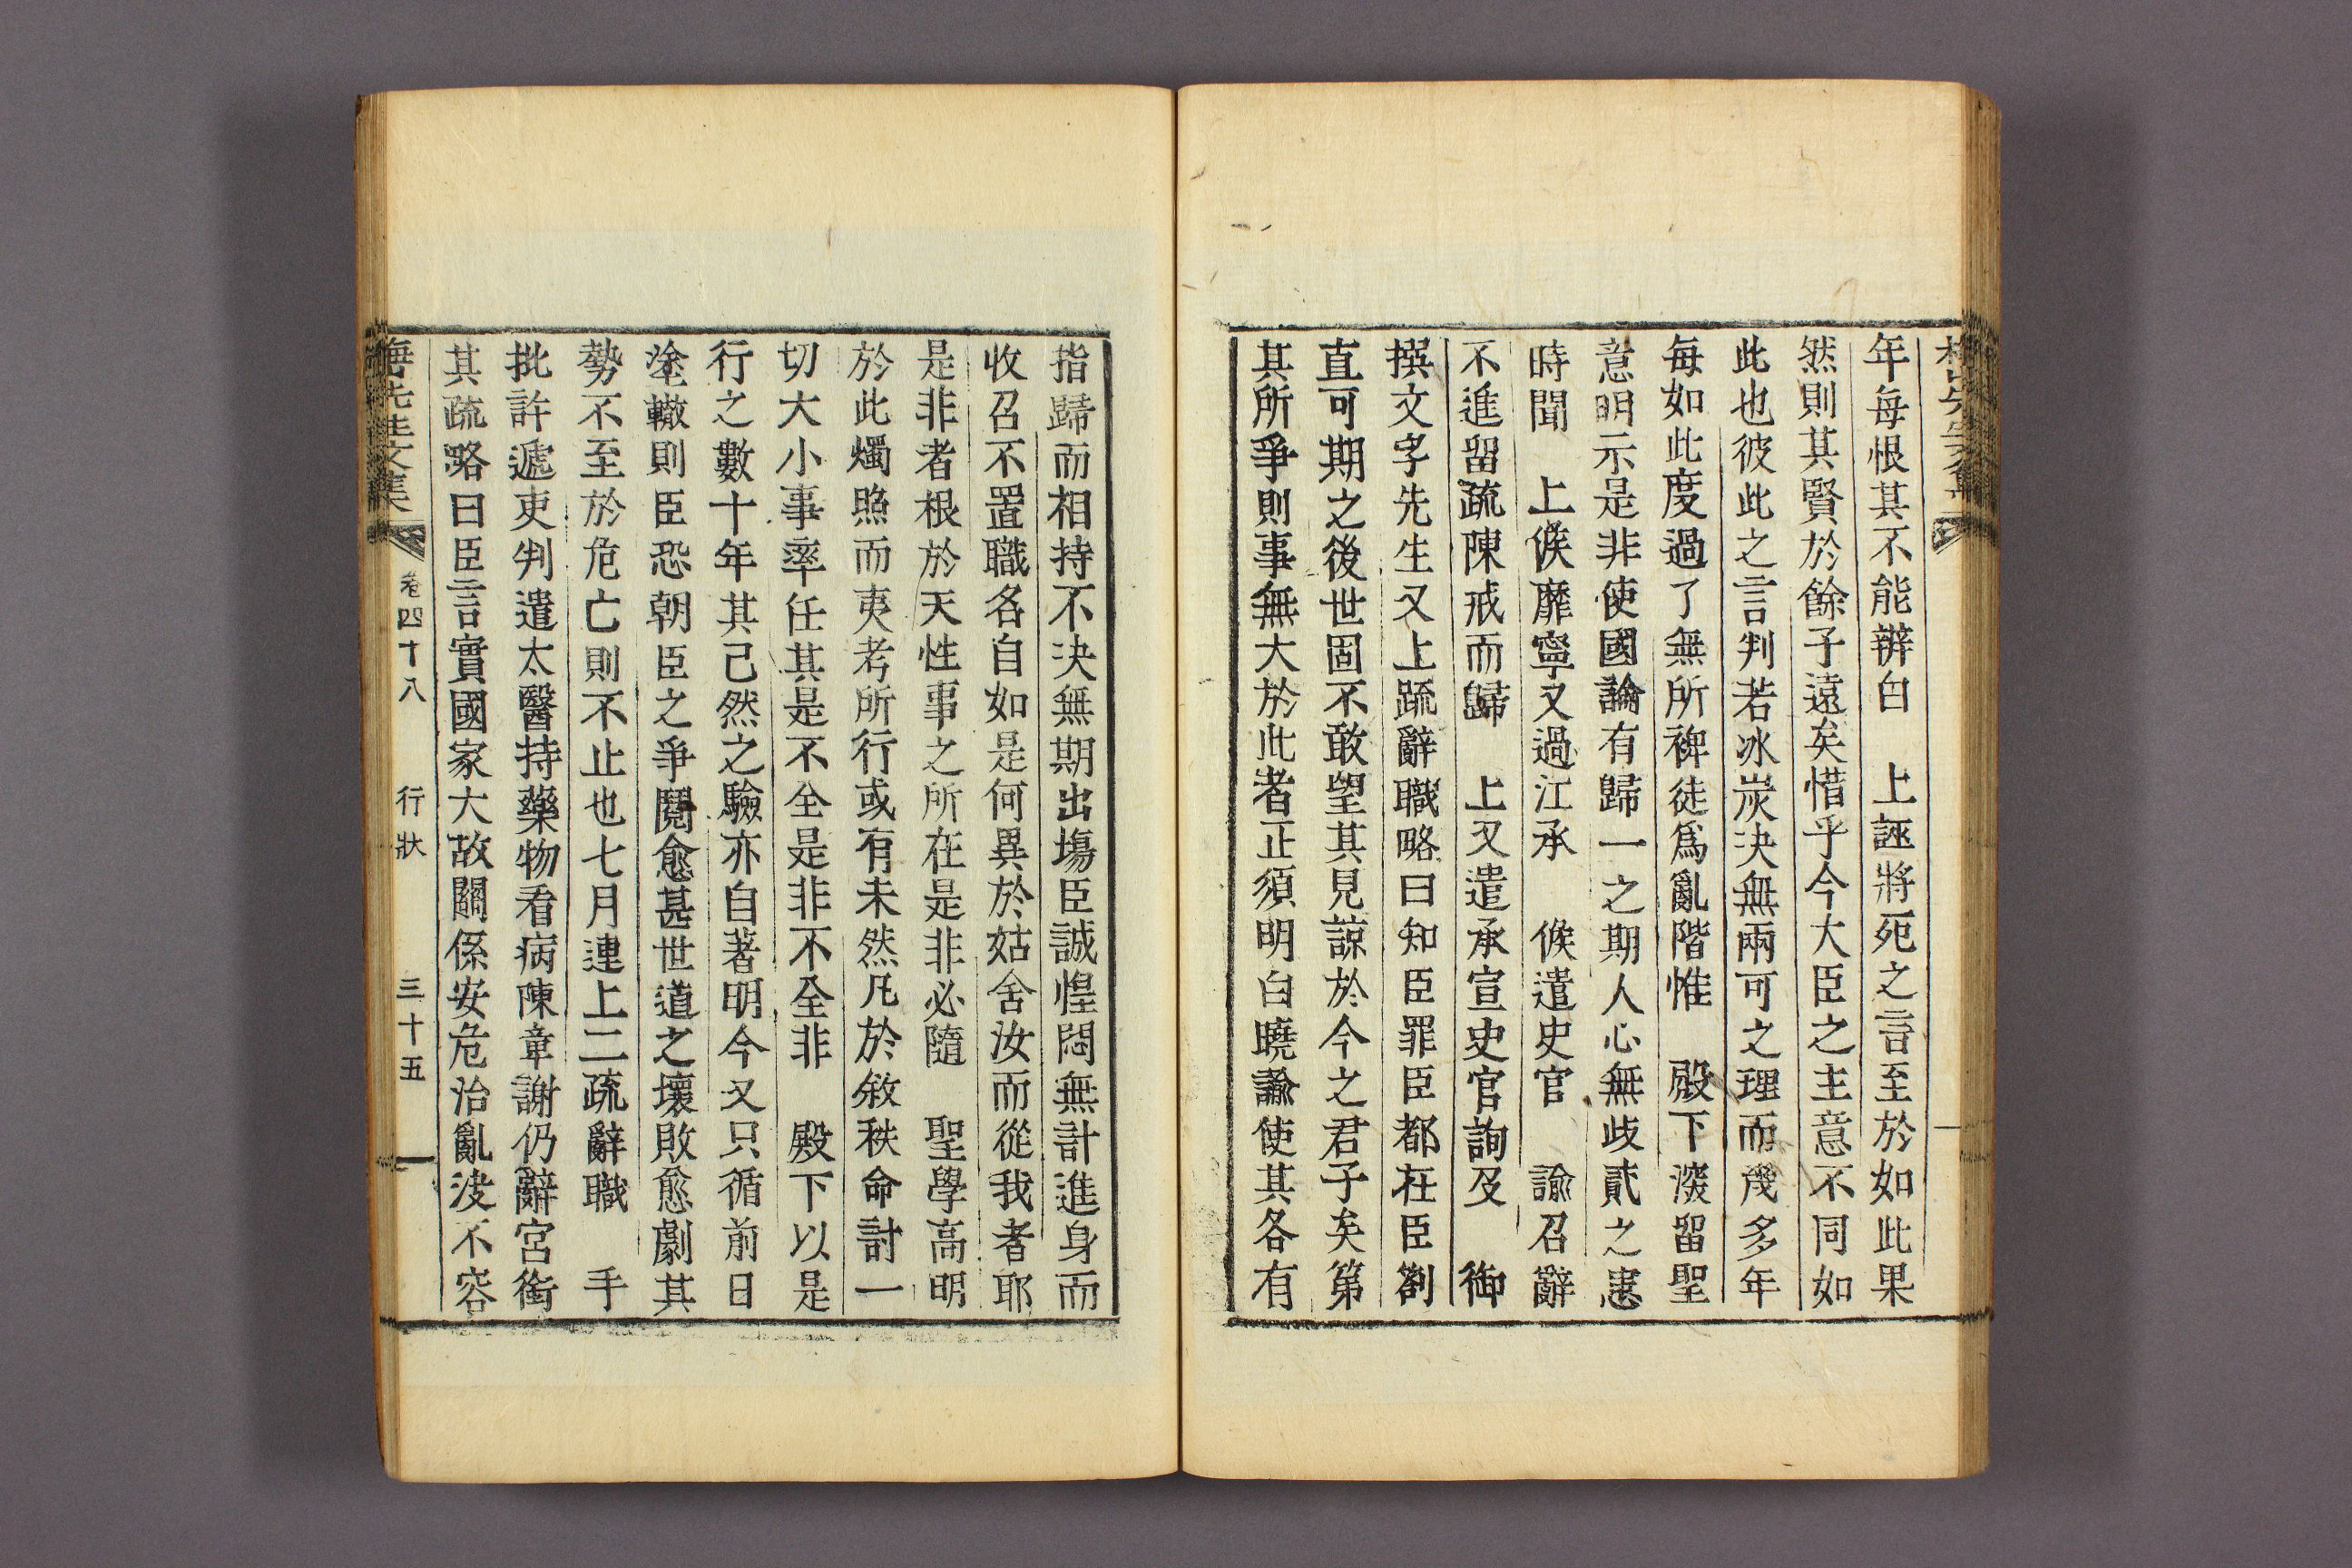 年每恨其不能辨白 上誣將死之言至於如此果
然則其賢於餘子遠矣惜乎今大臣之主意不同如
此也彼此之言判若冰炭決無兩可之理而幾多年
每如此度過了無所裨徒爲亂階惟 殿下深留聖
意明示是非使國論有歸一之期人心無歧貳之患
時聞 上候靡寧又過江承 候遣史官 諭召辭
不進留疏陳戒而歸 上又遣承宣史官詢及 御
撰文字先生又上疏辭職略曰知臣罪臣都在臣劄
直可期之後世固不敢望其見諒於今之君子矣第
其所爭則事無大於此者正須明白曉諭使其各有
指歸而相持不決無期出場臣誠惶悶無計進身而
收召不置職各自如是何異於姑舍汝而從我者耶
是非者根於天性事之所在是非必隨 聖學高明
於此燭照而夷考所行或有未然凡於敘秩命討一
切大小事率任其是不全是非不全非 殿下以是
行之數十年其已然之驗亦自著明今又只循前日
塗轍則臣恐朝臣之爭鬩愈甚世道之壞敗愈劇其
勢不至於危亡則不止也七月連上二疏辭職 手
批許遞吏判遣太醫持藥物看病陳章謝仍辭宮銜
其疏略曰臣言實國家大故關係安危治亂決不容
先生文集 卷四十八 行狀 三十五